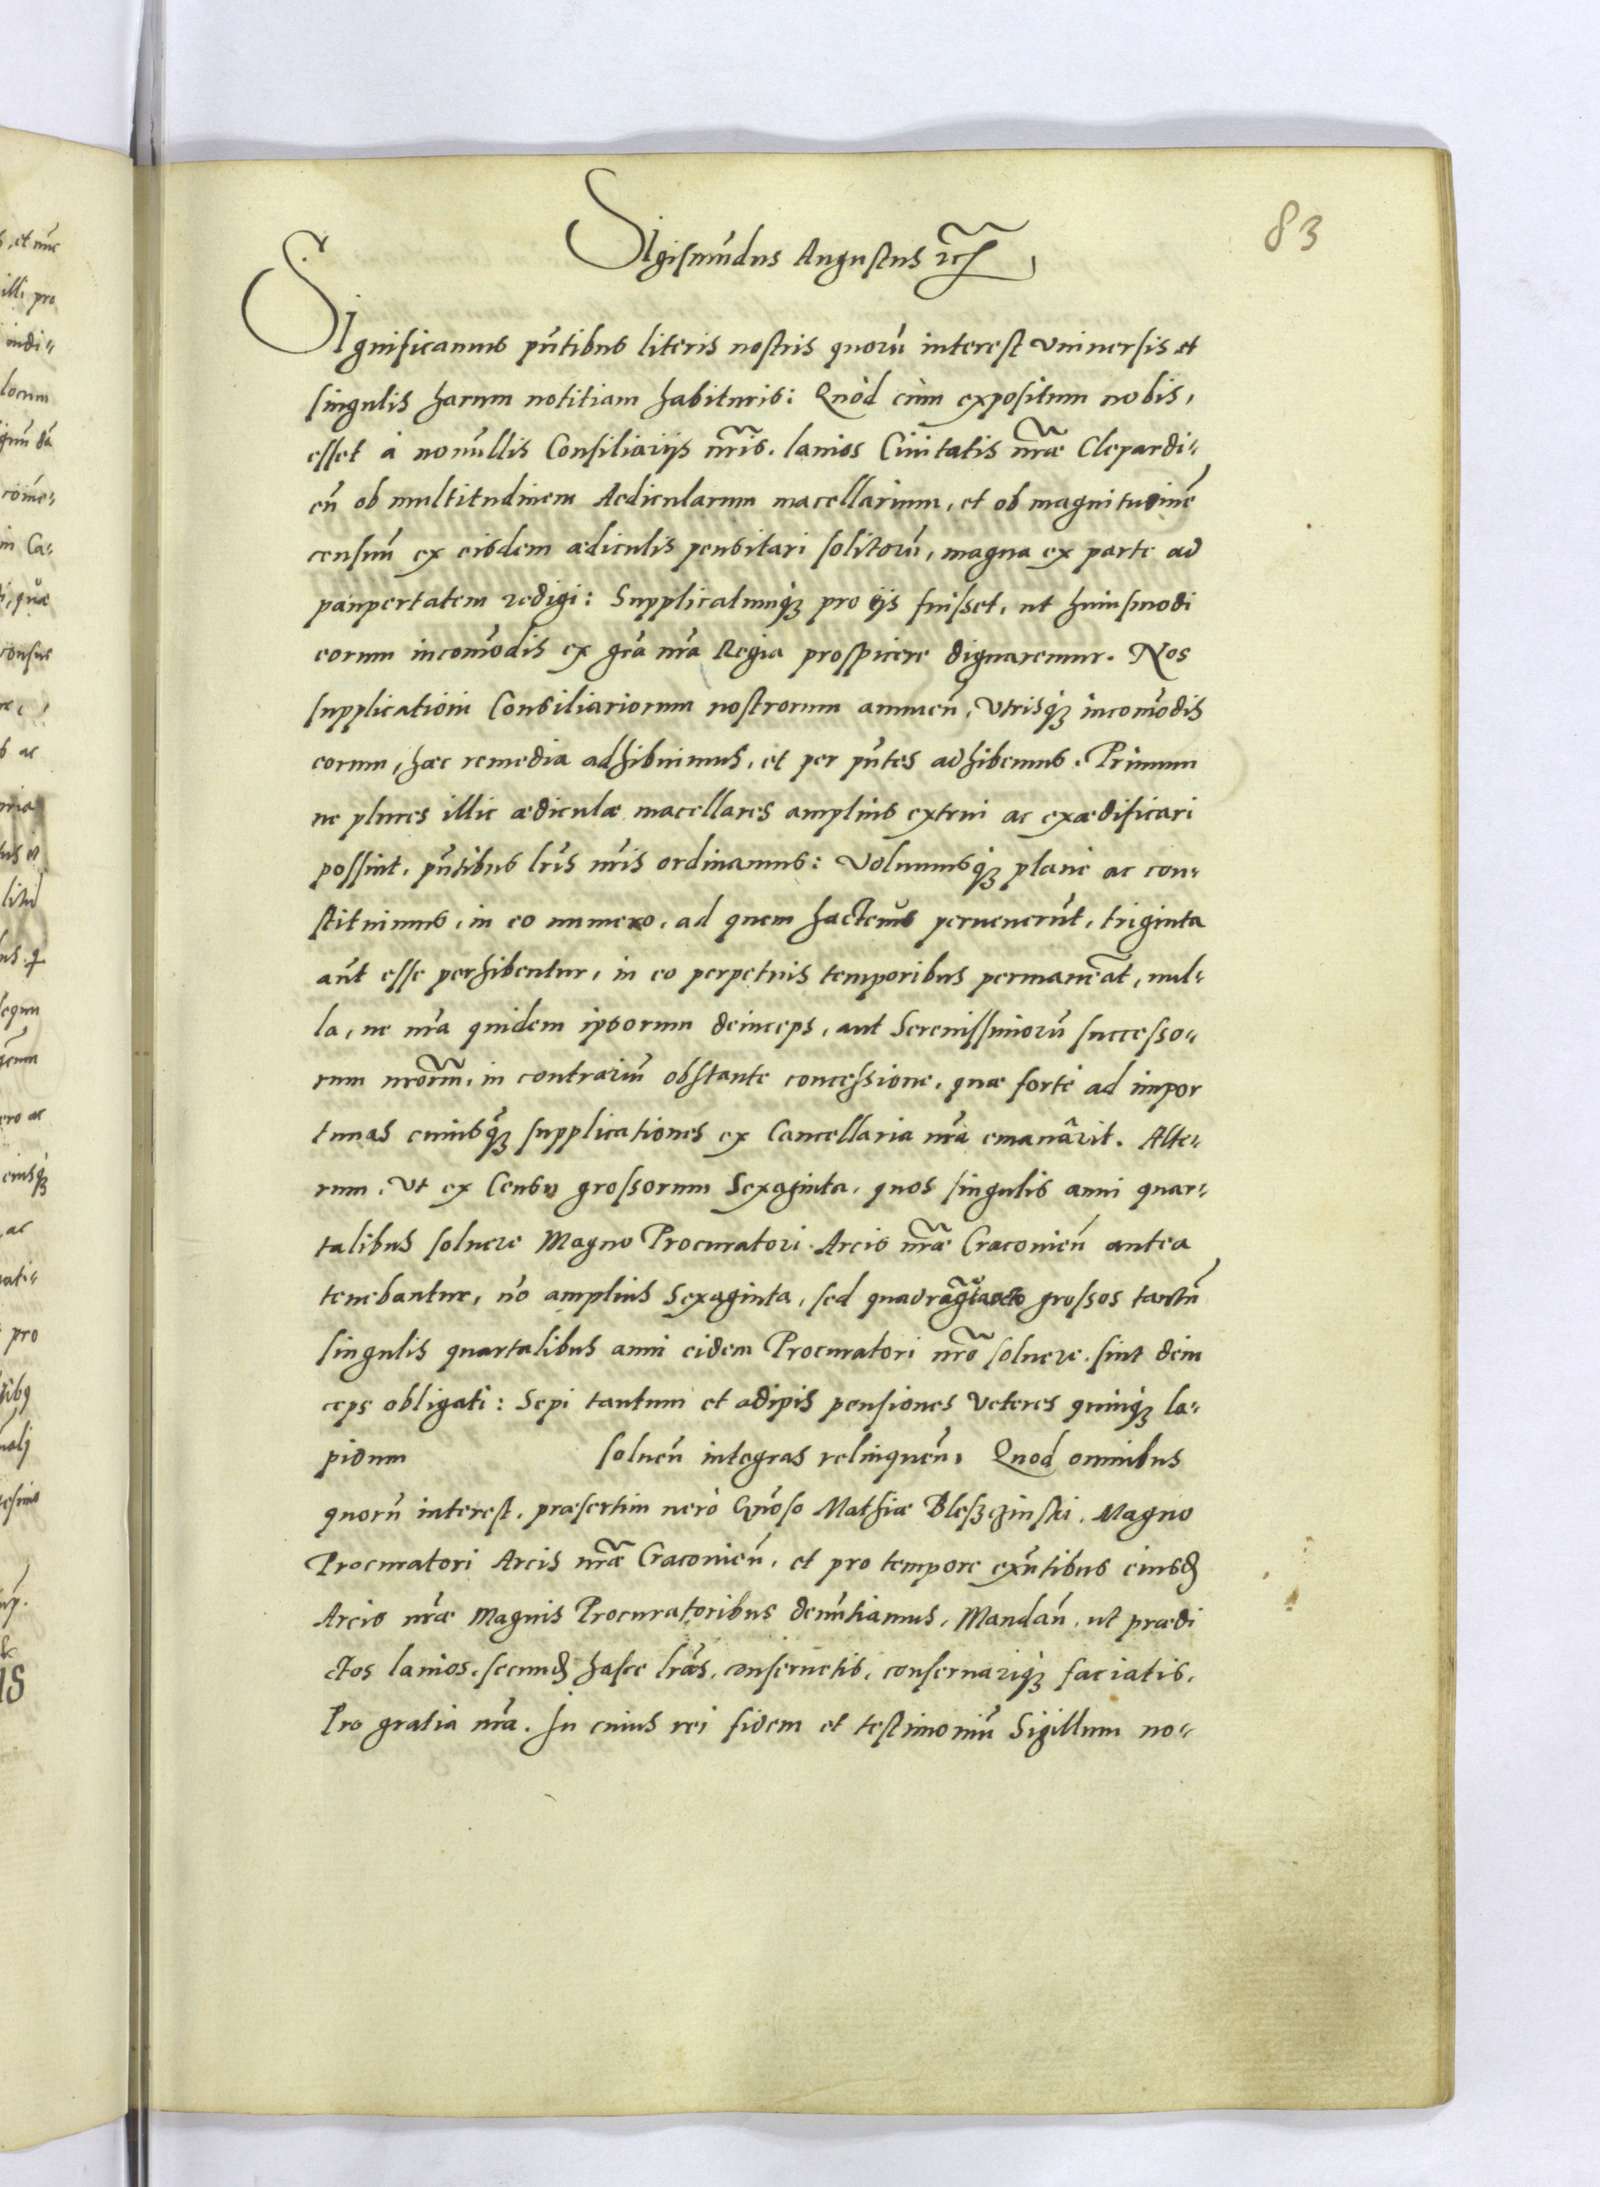 83
Sigismūdus Augustus etc̄
Significamus pn̄tibus literis nostris quorū interest vniuersis et
singulis harum notitiam habituris: Quòd cùm expositum nobis,
esset à nonūllis Consiliarijs nr̄is. lanios Ciuitatis nr̄æ Clepardi-
en̄ ob multitudinem Aedicularum macellarium, et ob magnitudinē
censuū ex eisdem ædiculis pensitari solitorū, magna ex parte ad
paupertatem redigi: Supplicatumq́ꝫ pro ijs fuisset, ut huiusmodi
eorum incom̄odis ex gr̄a nr̄a Regia prospicere dignaremur. Nos
supplicationi Consiliariorum nostrorum annuen̄, Vtrisq́ꝫ incom̄odis
eorum, hæc remedia adhibuimus, et per pn̄tes adhibemus. Primum
ne plures illic ædiculæ macellares amplius extrui ac exædificari
possint, pn̄tibus lr̄is nr̄is ordinamus: Volumusq́ꝫ planè ac con-
stituimus, in eo numero, ad quem hactenus peruenerūt, triginta
aūt esse perhibentur, in eo perpetuis temporibus permaneāt, nul-
la, ne nr̄a quidem ipsorum deinceps, aut Serenissimorū successo-
rum nr̄orum, in contrariū obstante concessione, quæ fortè ad impor
tunas cuiusq́ꝫ supplicationes ex Cancellaria nr̄a emanârit. Alte-
rum, Vt ex Censu grossorum Sexaginta, quos singulis anni quar-
talibus soluere Magno Procuratori Arcis nr̄æ Cracouien̄ antea
tenebantur, nō amplius Sexaginta, sed quadragītaocto grossos tantū
singulis quartalibus anni eidem Procuratori nr̄o soluere, sint dein
ceps obligati: Sepi tantum et adipis pensiones Veteres quinq́ꝫ la-
pidum soluen̄ integras relinquen̄. Quod omnibus
quorū interest, præsertim uerò Gn̄oso Mathiæ Bleszczinski, Magno
Procuratori Arcis nr̄æ Cracouien̄, et pro tempore exn̄tibus eiusd̄
Arcis nr̄æ Magnis Procuratoribus denūtiamus, Mandan̄, ut prædi
ctos lanios, secund̄ hasce lr̄as, conseruetis, conseruariq́ꝫ faciatis,
Pro gratia nr̄a. In cuius rei fidem et testimoniū Sigillum no-